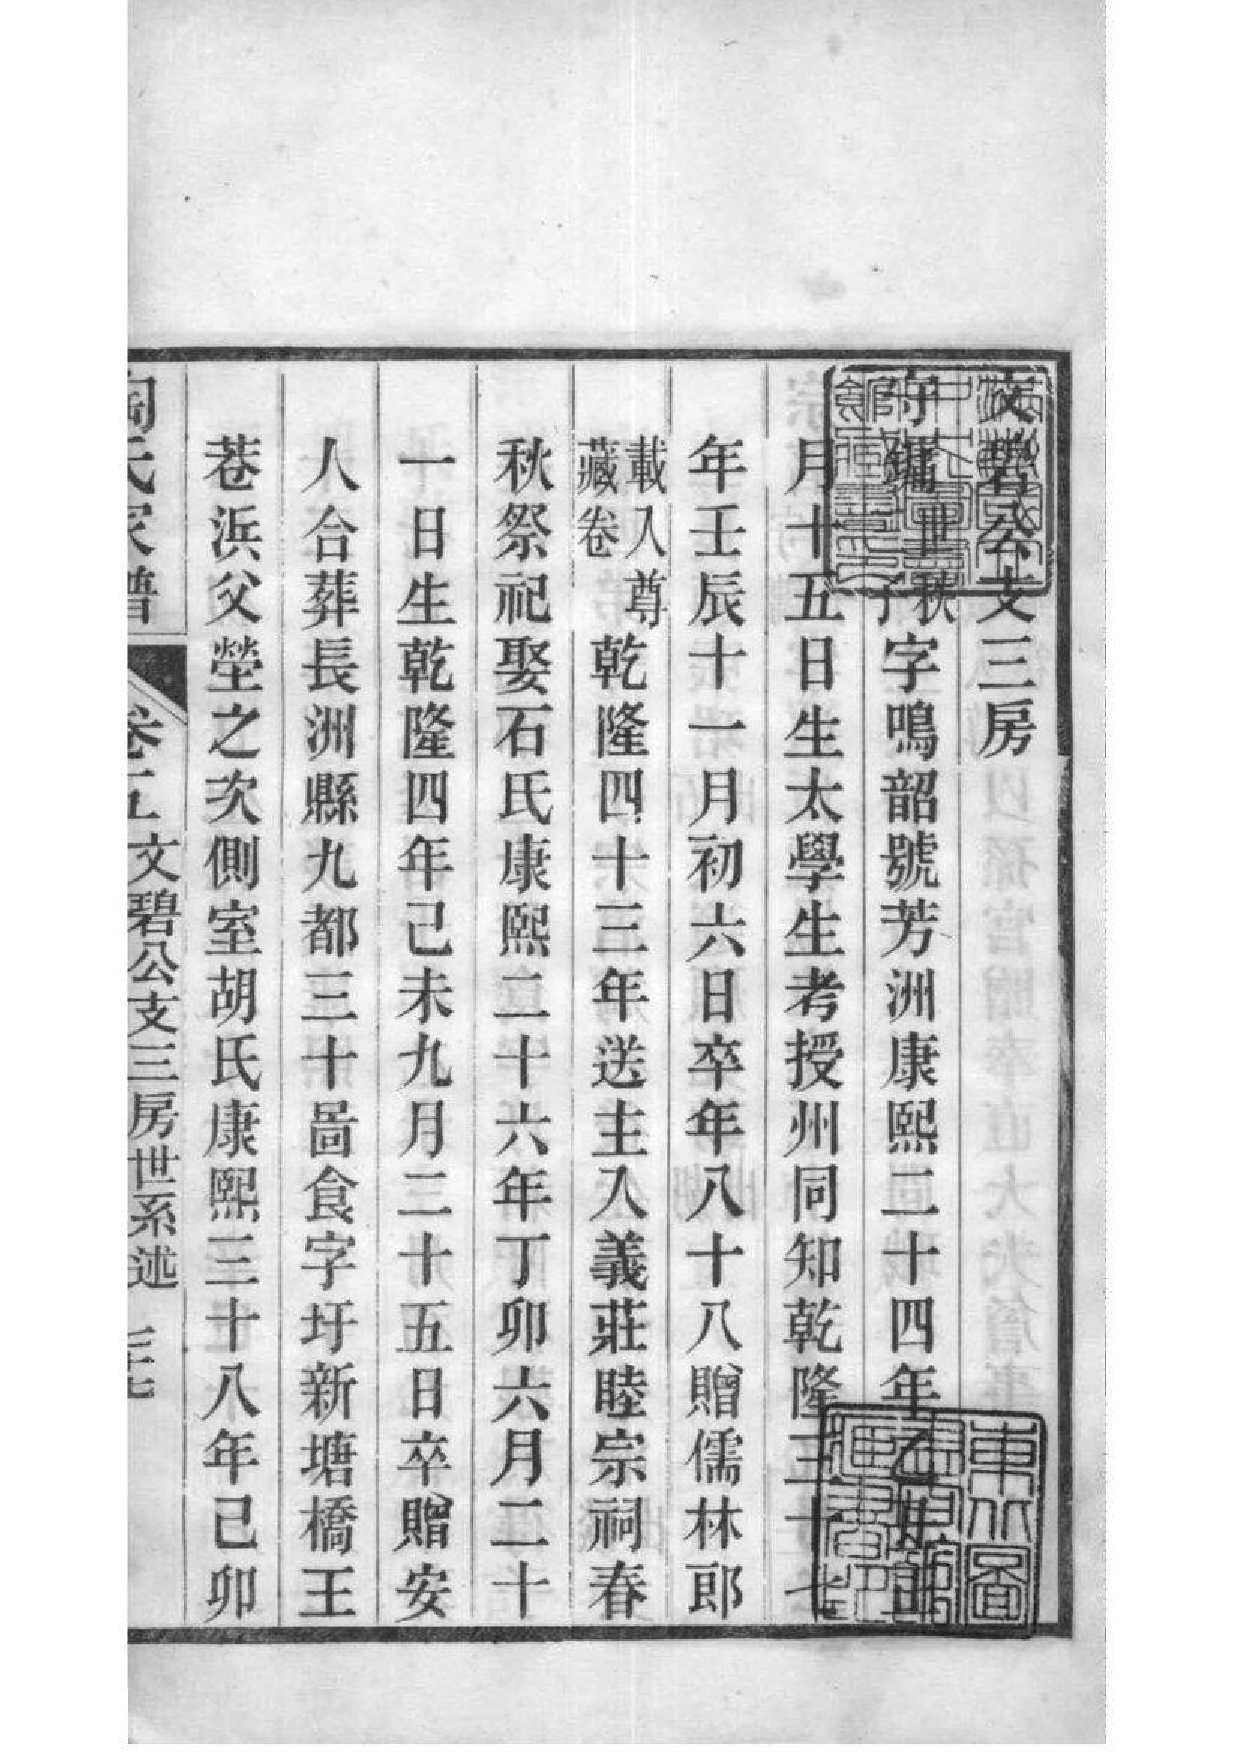 文碧公支三房
守鏞世秋子字鳴韶號芳洲康熙二十四年乙丑正
月十五日生太學生考授州同知乾隆三十七
年壬辰十一月初六日卒年八十八贈儒林郎
載入尊藏卷乾隆四十三年送主入義莊睦宗祠春
秋祭祀娶石氏康熙二十六年丁卯六月二十
一日生乾隆四年己未九月二十五日卒贈安
人合葬長洲縣九都三十啚食字圩新塘橋王
巷浜父塋之次側室胡氏康熙三十八年己卯
陶氏家譜 卷五 文碧公支三房世系述 三十七